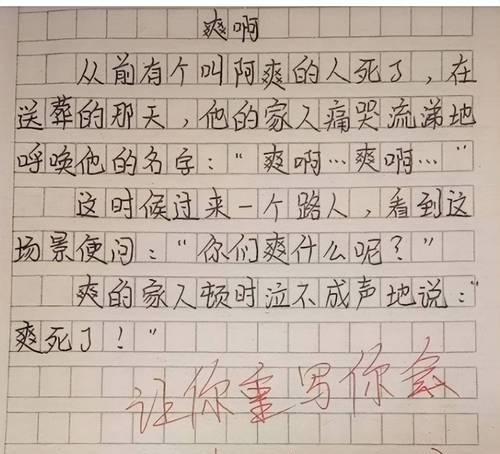 爽啊
从前有个叫阿爽的人死了，在
送葬的那天，他的家人痛哭流涕地
呼唤他的名字：“爽啊…爽啊…”
这时候过来一个路人，看到这
场景便问：“你们爽什么呢？”
爽的家人顿时泣不成声地说：“
爽死了！”
让你重写你会